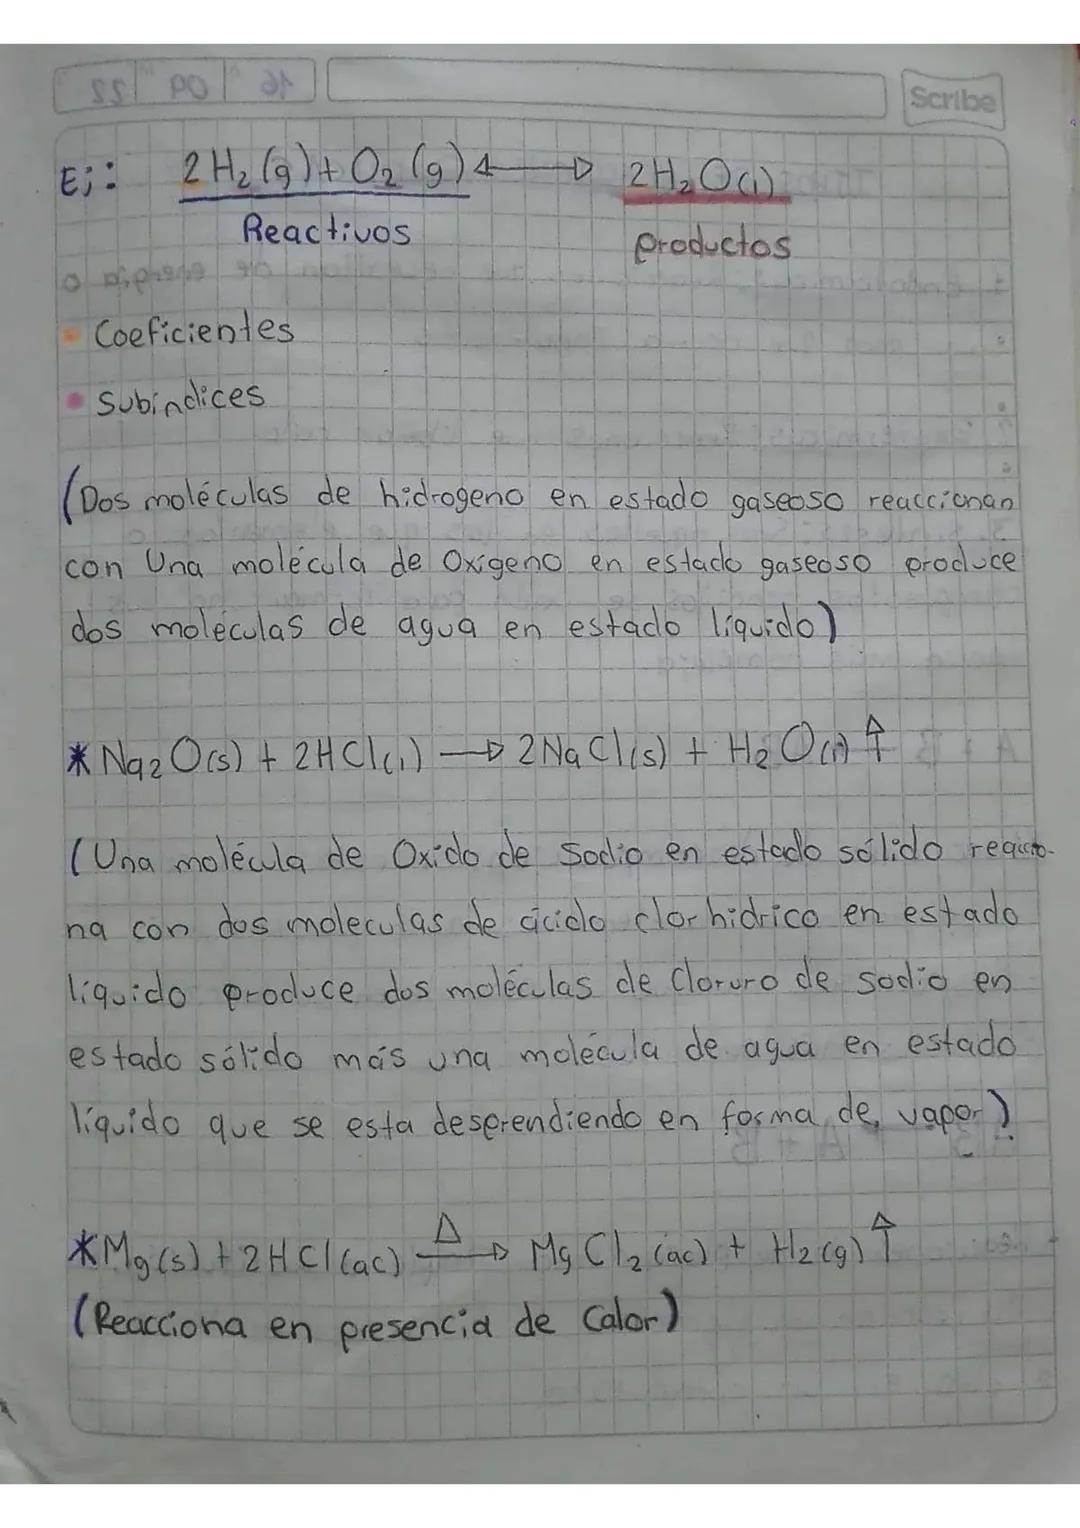 Scribe
Ej: 2H₂(g) + O₂(g) ◁—▷ 2H₂O(l)
Reactivos productos
• Coeficientes
• Subíndices
(Dos moléculas de hidrogeno en estado gaseoso reaccionan
con Una molécula de Oxígeno en estado gaseoso produce
dos moléculas de agua en estado líquido)
* Na₂O(s) + 2HCl(l) —▷ 2NaCl(s) + H₂O(l) ↑
(Una molécula de Oxido de Sodio en estado sólido reaccio-
na con dos moleculas de ácido clorhidrico en estado
líquido produce dos moléculas de Cloruro de sodio en
estado sólido más una molécula de agua en estado
líquido que se esta desprendiendo en forma de vapor)
* Mg(s) + 2HCl(ac) —Δ—▷ MgCl₂(ac) + H₂(g) ↑
(Reacciona en presencia de Calor)